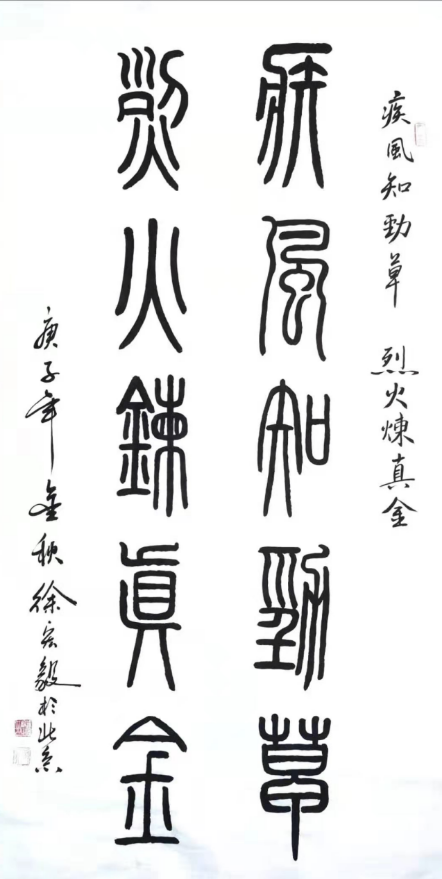 疾風知勁草 烈火煉真金
疾風知勁草
烈火鍊眞金
庚子年金秋徐宏毅於北京